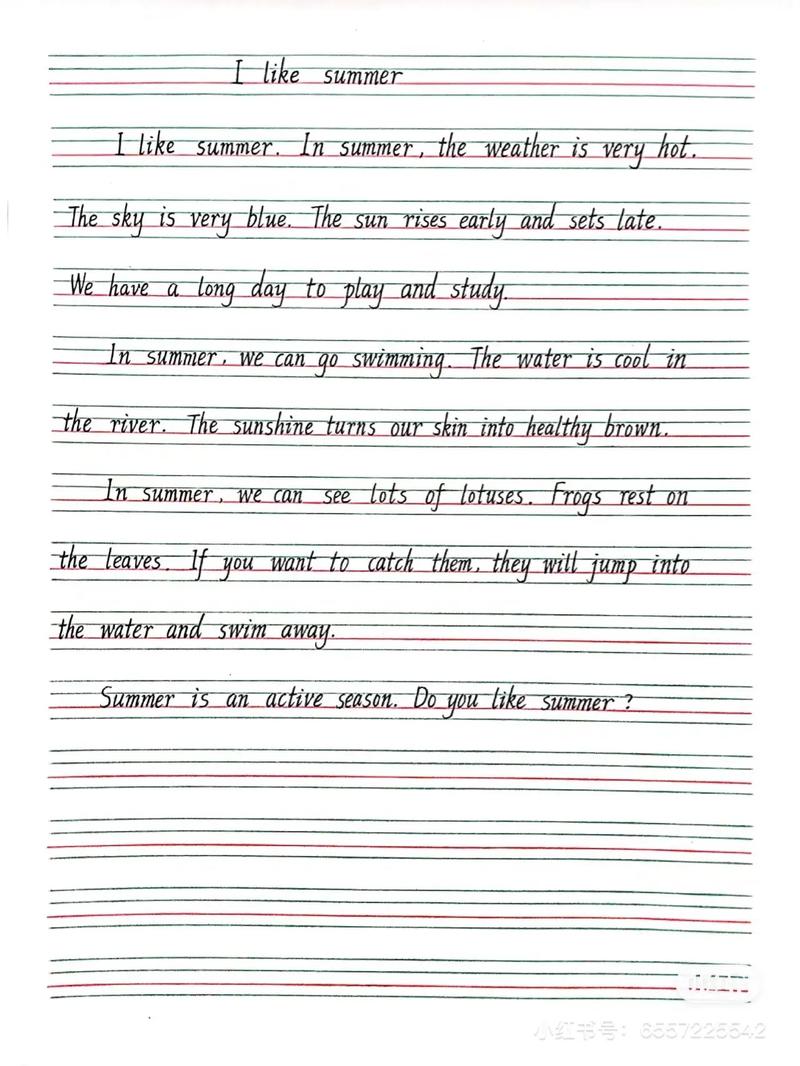 I like summer
I like summer. In summer, the weather is very hot.
The sky is very blue. The sun rises early and sets late.
We have a long day to play and study.
In summer, we can go swimming. The water is cool in
the river. The sunshine turns our skin into healthy brown.
In summer, we can see lots of lotuses. Frogs rest on
the leaves. If you want to catch them, they will jump into
the water and swim away.
Summer is an active season. Do you like summer?
小红书
小红书号: 6557225542